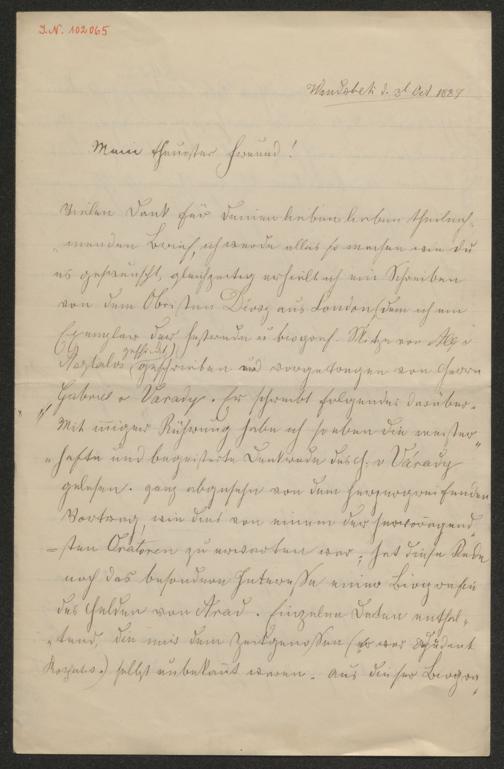 I.N. 102065
Wandsbek d. 3t Oct 1889
Mein theurster Freund!
Vielen Dank für deinen lieben lieben theilneh-
menden Brief, ich werde alles so machen wie du
es gewünscht, gleichzeitig erhielt ich ein Schreiben
von dem Obersten Diósy aus London (dem ich ein
Exemplar der Festrede u biograf. Skitze von
geschickt
geschrieben und vorgetragen von Herrn
Gabriel v Várady. Er schreibt folgendes darüber.
"Mit inniger Rührung habe ich soeben die meister-
-hafte und begeisterte Denkrede des G. v Várady
gelesen. ganz abgesehn von dem herzergreifenden
Vortrag, wie dies von einem der hervorragend-
-sten Oratoren zu erwarten war, hat diese Rede
noch das besondere Interesse einer Biografie
des Helden von Arad. Einzelne Daten enthal-
-tend, die mir dem Zeitgenossen (er war Student
) selbst unbekant waren. aus dieser Biogra-